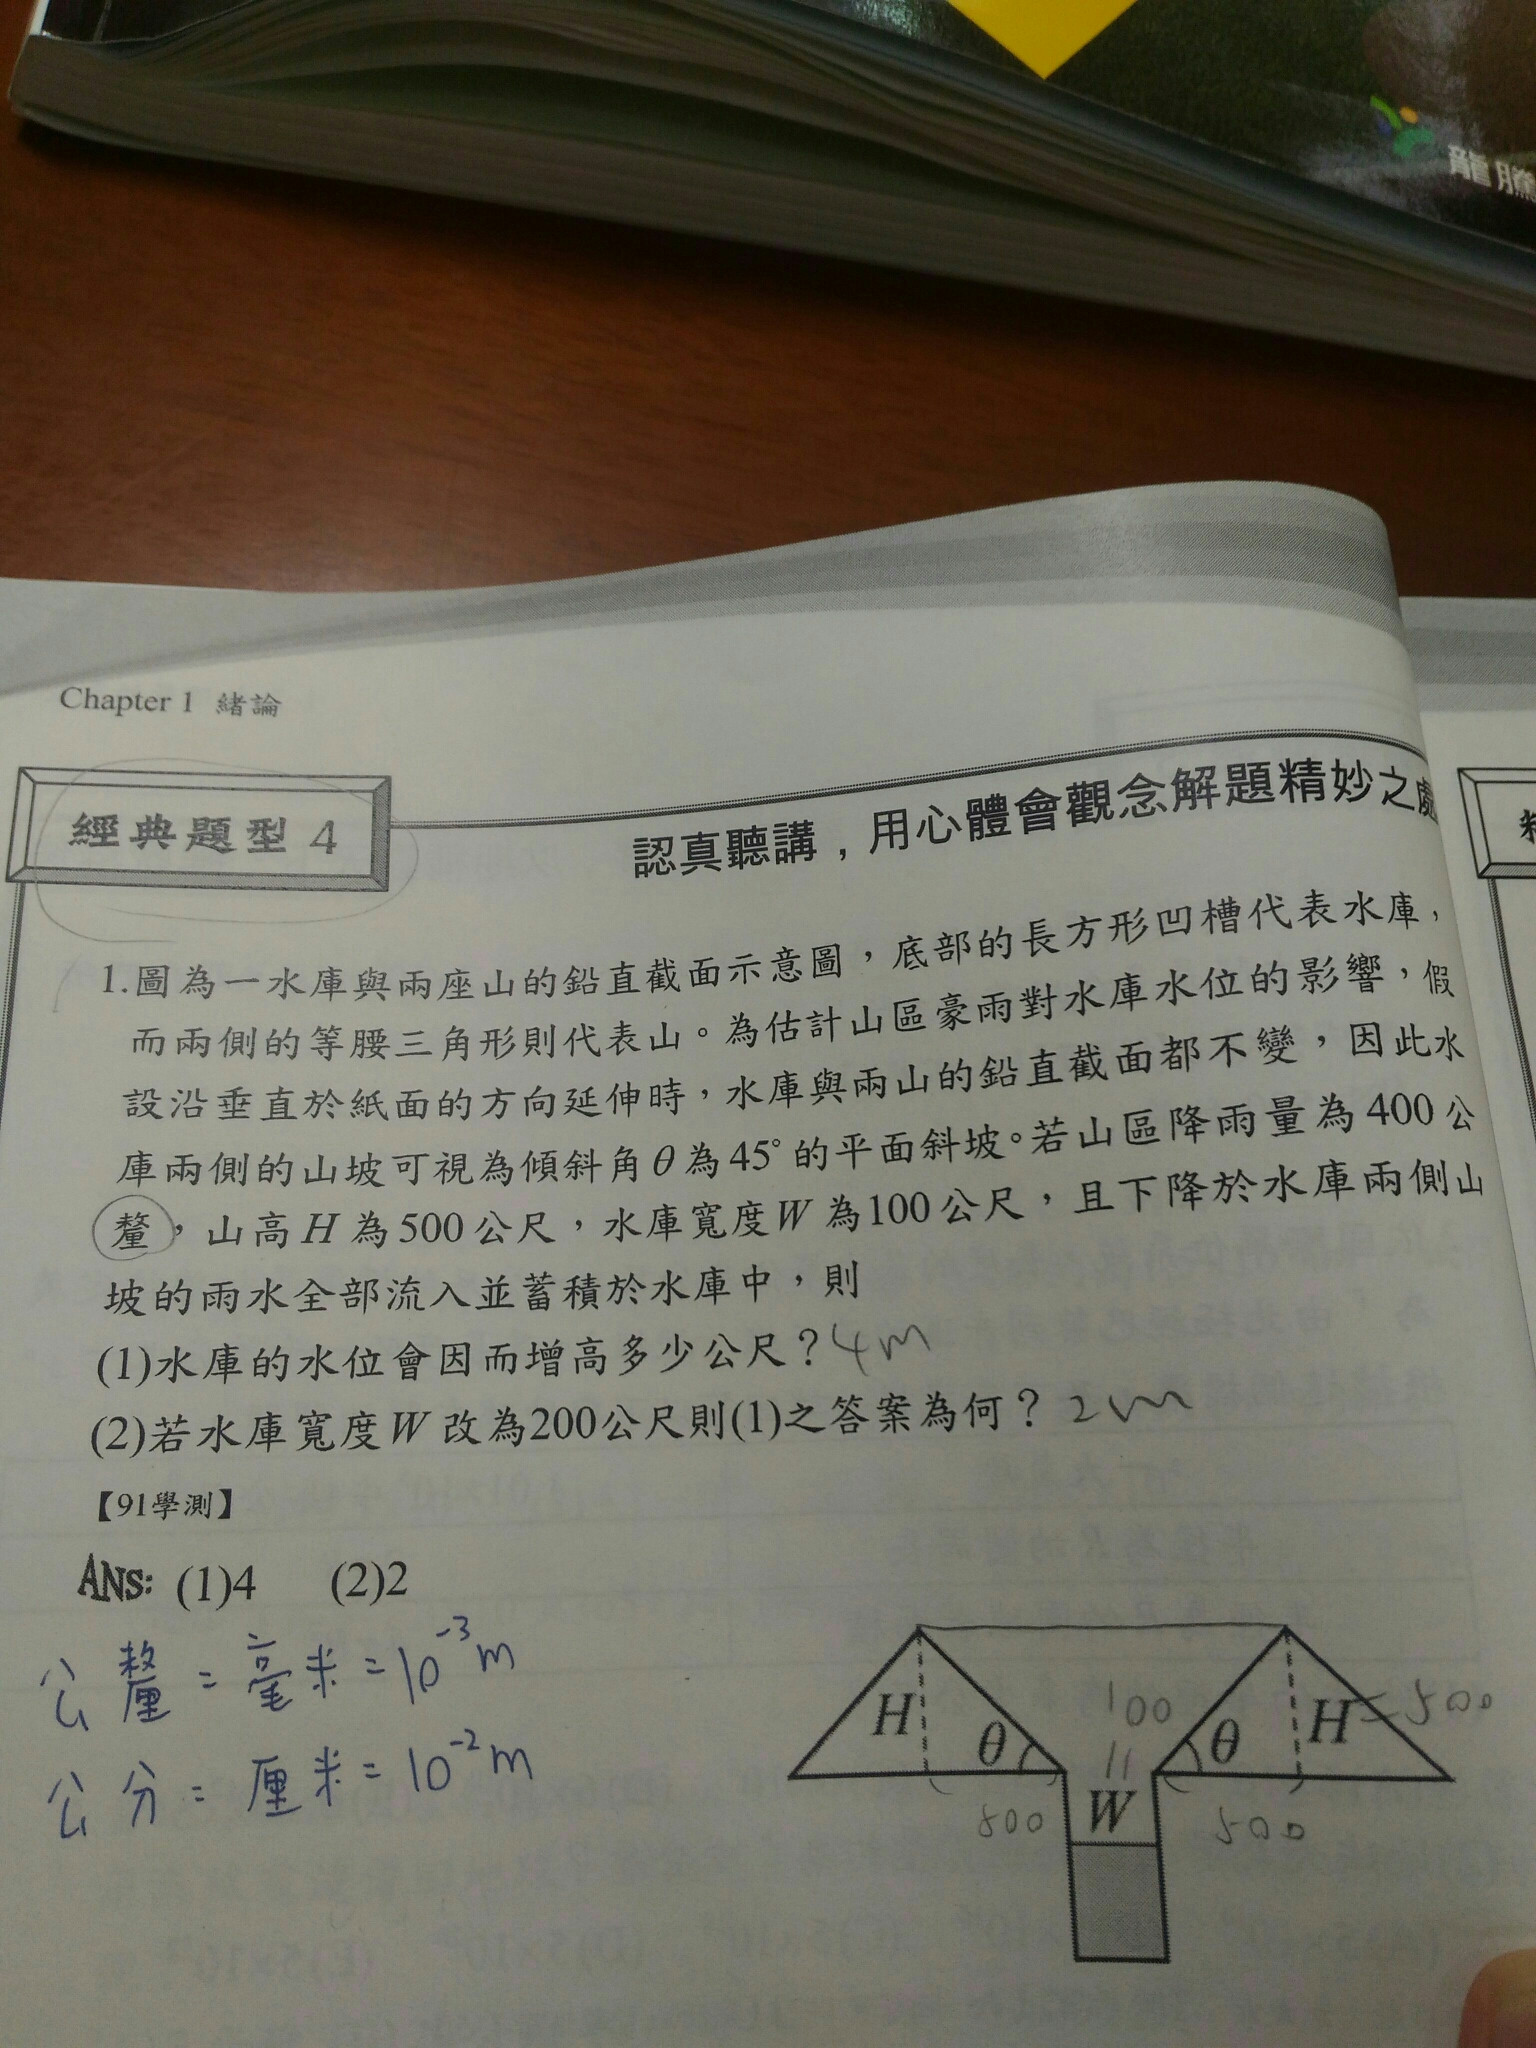 龍騰
Chapter 1 緒論
經典題型 4
認真聽講，用心體會觀念解題精妙之處
1.圖為一水庫與兩座山的鉛直截面示意圖，底部的長方形凹槽代表水庫，
而兩側的等腰三角形則代表山。為估計山區豪雨對水庫水位的影響，假
設沿垂直於紙面的方向延伸時，水庫與兩山的鉛直截面都不變，因此水
庫兩側的山坡可視為傾斜角θ為45°的平面斜坡。若山區降雨量為400公
釐，山高H為500公尺，水庫寬度W為100公尺，且下降於水庫兩側山
坡的雨水全部流入並蓄積於水庫中，則
(1)水庫的水位會因而增高多少公尺？4m
(2)若水庫寬度W改為200公尺則(1)之答案為何？2m
【91學測】
ANS: (1)4 (2)2
公釐=毫米=10⁻³m
公分=厘米=10⁻²m
H θ 100 θ H=500
W
500 500